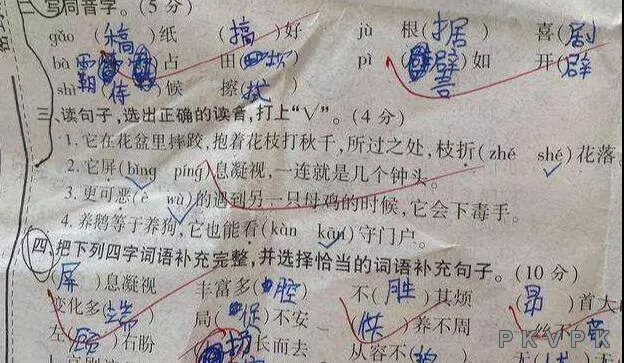 写同音字。(5分)
gǎo (稿)纸 (搞)好 jù 根(据) 喜(剧)
bà (霸)占 田(坝) pì (譬)如 开(辟)
shì (侍)候 擦(拭)
三、读句子,选出正确的读音,打上“√”。(4分)
1. 它在花盆里摔跤,抱着花枝打秋千,所过之处,枝折(zhé shé)花落。
2. 它屏(bǐng píng)息凝视,一连就是几个钟头。
3. 更可恶(è wù)的遇到另一只母鸡的时候,它会下毒手。
4. 养鹅等于养狗,它也能看(kàn kān)守门户。
四、把下列四字词语补充完整,并选择恰当的词语补充句子。(10分)
(屏)息凝视 丰富多(腔) 不(胜)其烦 (昂)首大
变化多(端) 局(促)不安 (供)养不周 丝不
左(顾)右盼 (扬)长而去 从容不
PKVPK